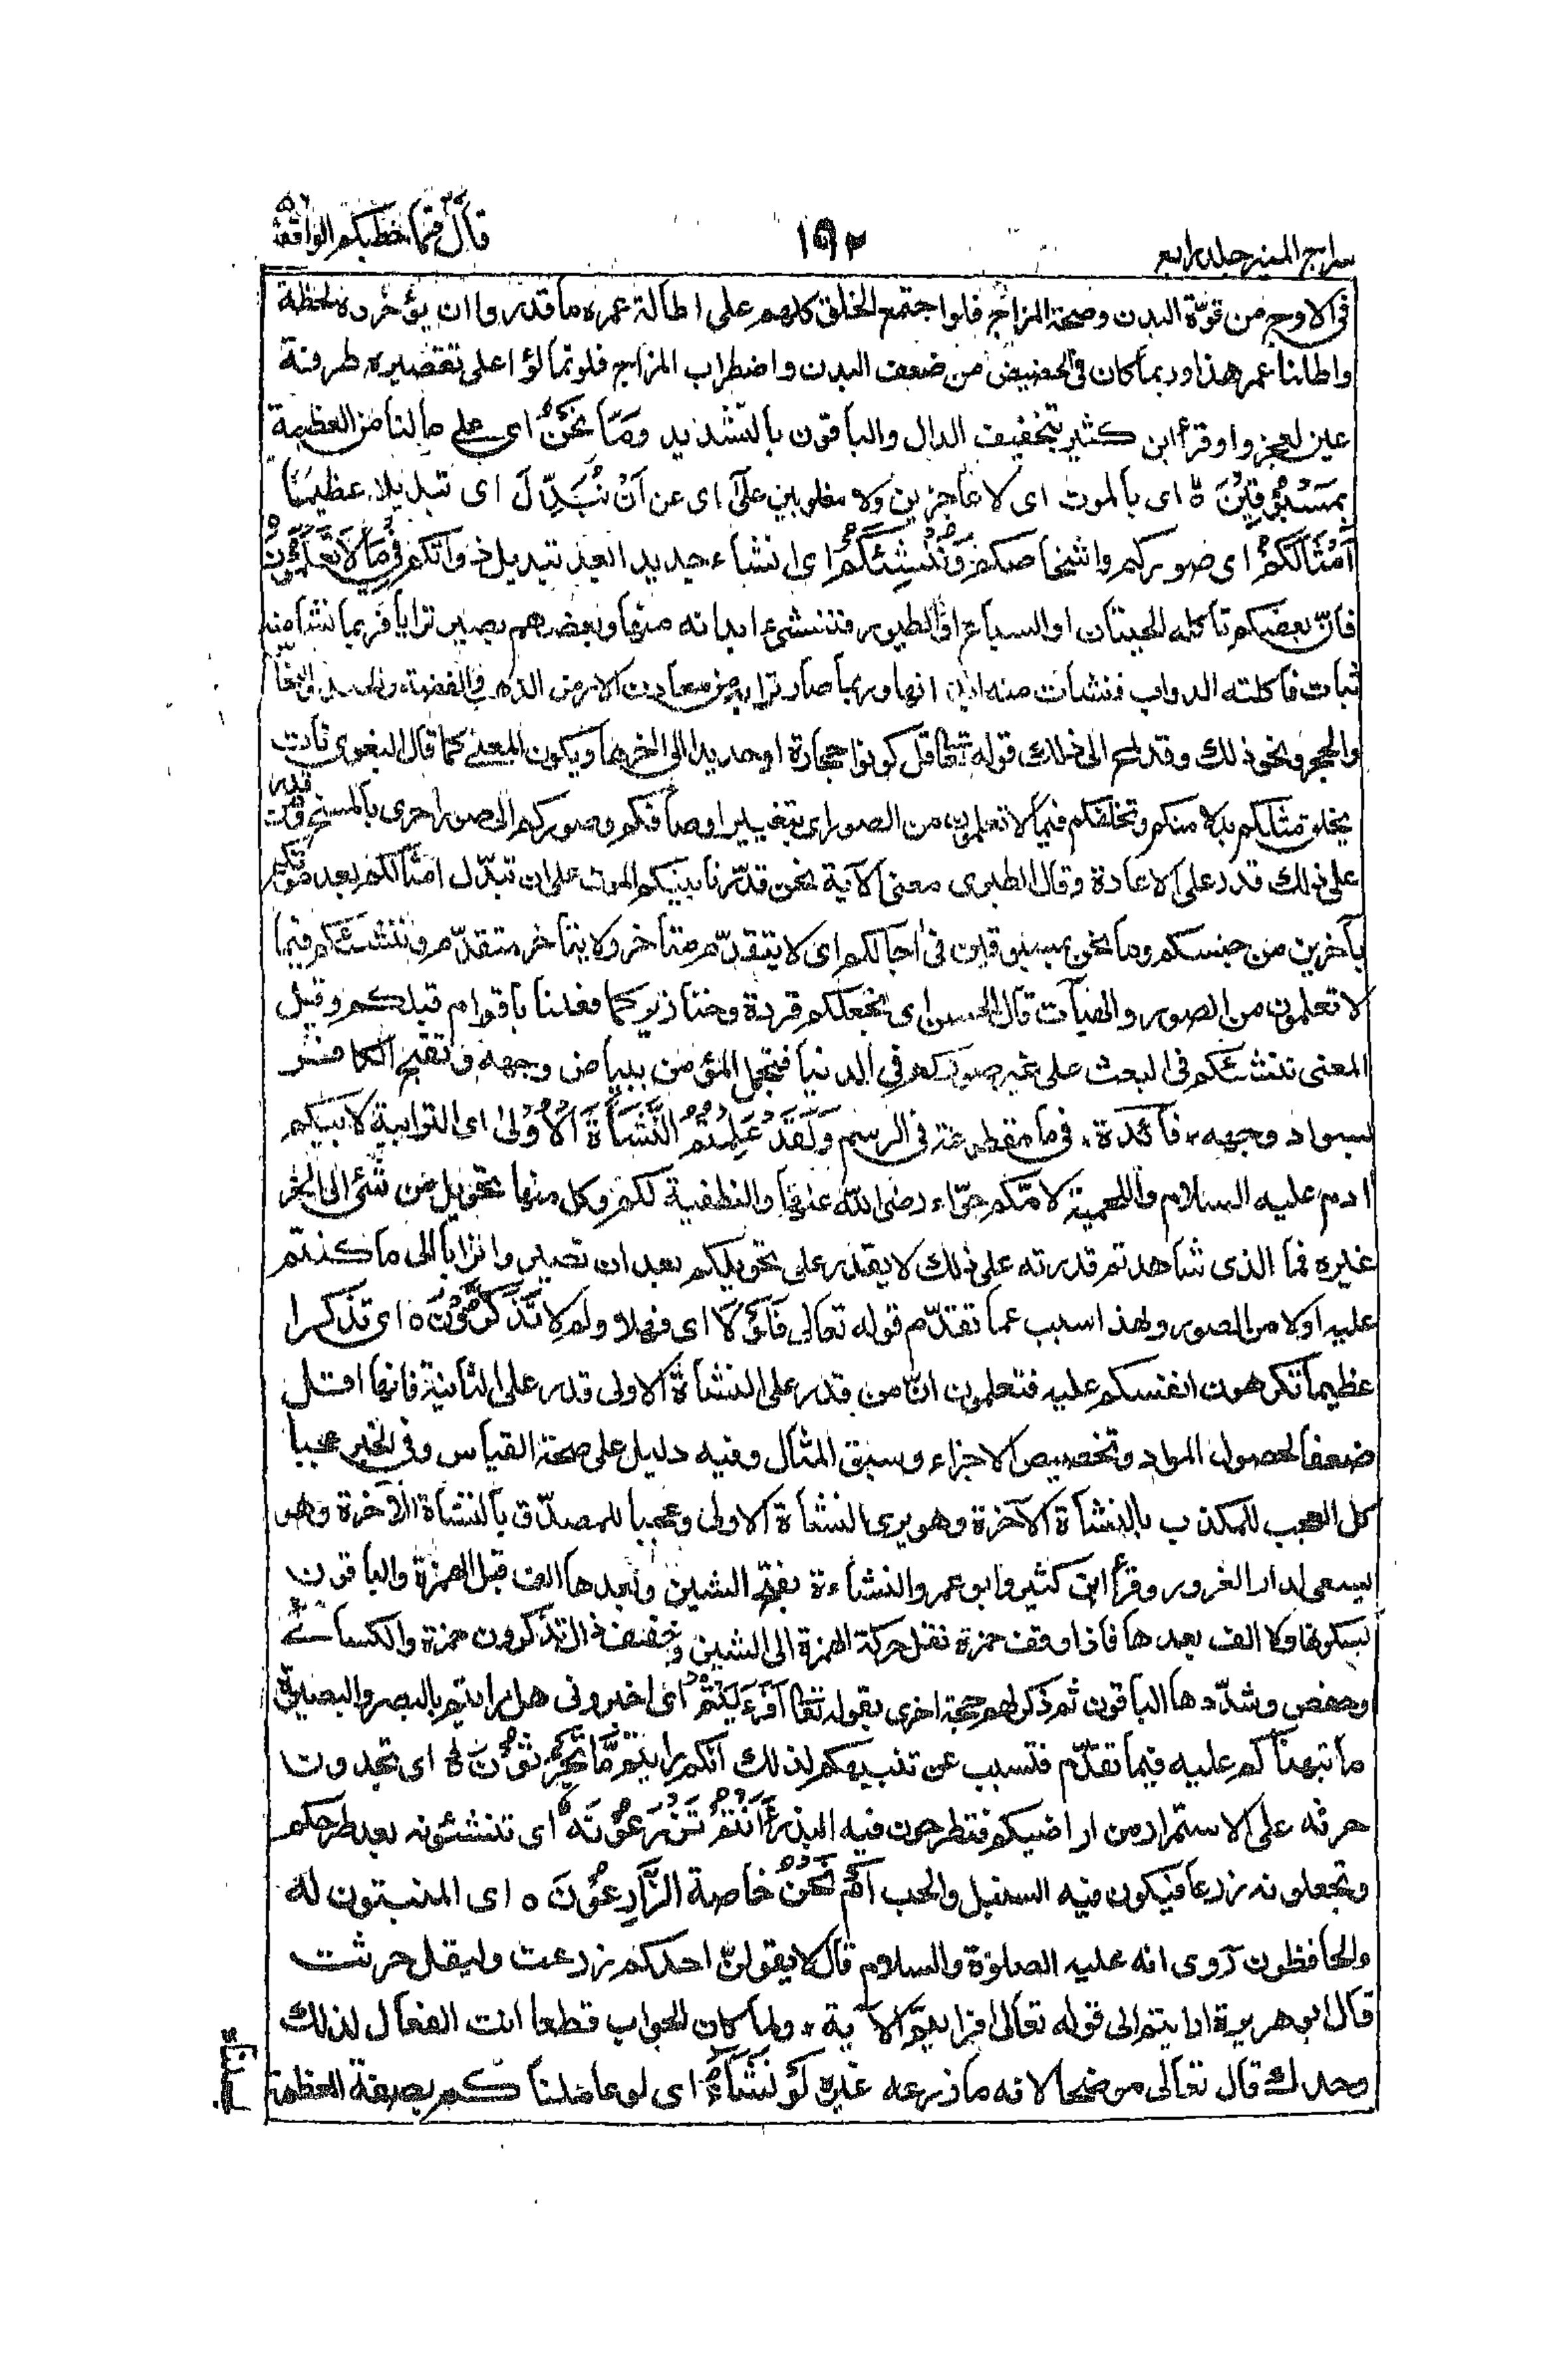 سراج المنير جلد رابع ١٩٢ قال فما خطبكم الواقعة
فى الاوج من قوّة البدن وصحة المزاج فلواجتمع الخلق كلهم على اطالة عمره ما قدروا ان يؤخروه لحظة
واطلنا عمر هذا وربما كان فى الحضيض من ضعف البدن واضطراب المزاج فلو تمالؤا على تقصيره طرفة
عين لعجزوا وقرأ ابن كثير بتخفيف الدال والباقون بالتشديد وَمَا نَحْنُ اى على ما لنا من العظمة
بِمَسْبُوْقِيْنَ ۵ اى بالموت اى لا عاجزين ولا مغلوبين عَلٰى اى عن اَنْ نُّبَدِّلَ اى تبديلا عظيما
اَمْثَالَكُمْ اى صوركم واشخاصكم وَنُنْشِئَكُمْ اى انشاء جديدا بعد تبديل ذواتكم فِىْ مَا لَا تَعْلَمُوْنَ
فانّ بعضكم تاكله الحيتان او السباع او الطيور فتنشئ ابدانه منها وبعضهم يصير ترابا فربما نشا منه
نبات فاكلته الدواب فنشات منه ابدانها وربما صار ترابه من معادن الارض الذهب والفضة والحديد والنحاس
والحجر ونحو ذلك وقد لمح الى ذلك قوله تعالى قل كونوا حجارة او حديدا الى اخرها ويكون المعنى كما قال البغوى نأت
بخلق مثلكم بدلا منكم ونخلقكم فيما لا تعلمون من الصور اى بتغيير اوصافكم وصوركم الى صور اخرى بالمسخ ومن قدر
على ذلك قدر على الاعادة وقال الطبرى معنى الآية نحن قدّرنا بينكم الموت على ان نبدّل امثالكم بعد موتكم
بآخرين من جنسكم وما نحن بمسبوقين فى آجالكم اى لا يتقدّم متاخر ولا يتاخر متقدّم وننشئكم فيما
لا تعلمون من الصور والهيآت قال الحسن اى نجعلكم قردة وخنازير كما فعلنا باقوام قبلكم وقيل
المعنى ننشئكم فى البعث على غير صوركم فى الدنيا فنجمل المؤمن ببياض وجهه ونقبح الكافر
بسواد وجهه، فائدة، فى ما مقطوعة فى الرسم وَلَقَدْ عَلِمْتُمُ النَّشْاَةَ الْاُوْلٰى اى الترابية لابيكم
ادم عليه السلام واللحمية لامّكم حوّاء رضى الله عنها والنطفية لكم وكل منها تحويل من شئ الى اخر
غيره فما الذى شاهدتم قدرته على ذلك لا يقدر على تحويلكم بعد ان تصيروا ترابا الى ما كنتم
عليه اولا من الصور ولهذا سبب عما تقدّم قوله تعالى فَلَوْلَا اى فهلا ولم لا تَذَكَّرُوْنَ ۵ اى تذكرا
عظيما تكرهون انفسكم عليه فتعلمون انّ من قدر على النشأة الاولى قدر على الثانية فانها اقل
ضعفا لحصول المواد وتخصيص الاجزاء وسبق المثال وفيه دليل على صحة القياس وفى الخبر عجبا
كل العجب للمكذب بالنشأة الآخرة وهو يرى النشاة الاولى وعجبا للمصدّق بالنشاة الآخرة وهو
يسعى لدار الغرور وقرأ ابن كثير وابو عمرو النشاءة بفتح الشين وبعدها الف قبل الهمزة والباقون
بسكونها ولا الف بعدها فاذا وقف حمزة نقل حركة الهمزة الى الشين وخفف ذال تذكرون حمزة والكسائى
وحفص وشدّدها الباقون ثم ذكر لهم حجة اخرى بقوله تعالى اَفَرَءَيْتُمْ اى اخبرونى هل رايتم بالبصر والبصيرة
ما نبهناكم عليه فيما تقدّم فتسبب عن تنبيهكم لذلك انكم رايتم مَّا تَحْرُثُوْنَ اى تجدون
حرثه على الاستمرار من اراضيكم فتطرحون فيه البذر ءَاَنْتُمْ تَزْرَعُوْنَهٗ اى تنشئونه بعد طرحكم
وتجعلونه زرعا فيكون فيه السنبل والحب اَمْ نَحْنُ خاصة الزَّارِعُوْنَ ۵ اى المنبتون له
والحافظون رُوى انه عليه الصلوٰة والسلام قال لا يقولنّ احدكم زرعت وليقل حرثت
قال ابو هريرة ارايتم الى قوله تعالى افرايتم الآية، ولما كان الجواب قطعا انت الفعال لذلك
وحدك قال تعالى موضحا لانه ما زرعه غيره لَوْ نَشَآءُ اى لو عاملناكم بصفة العظمة